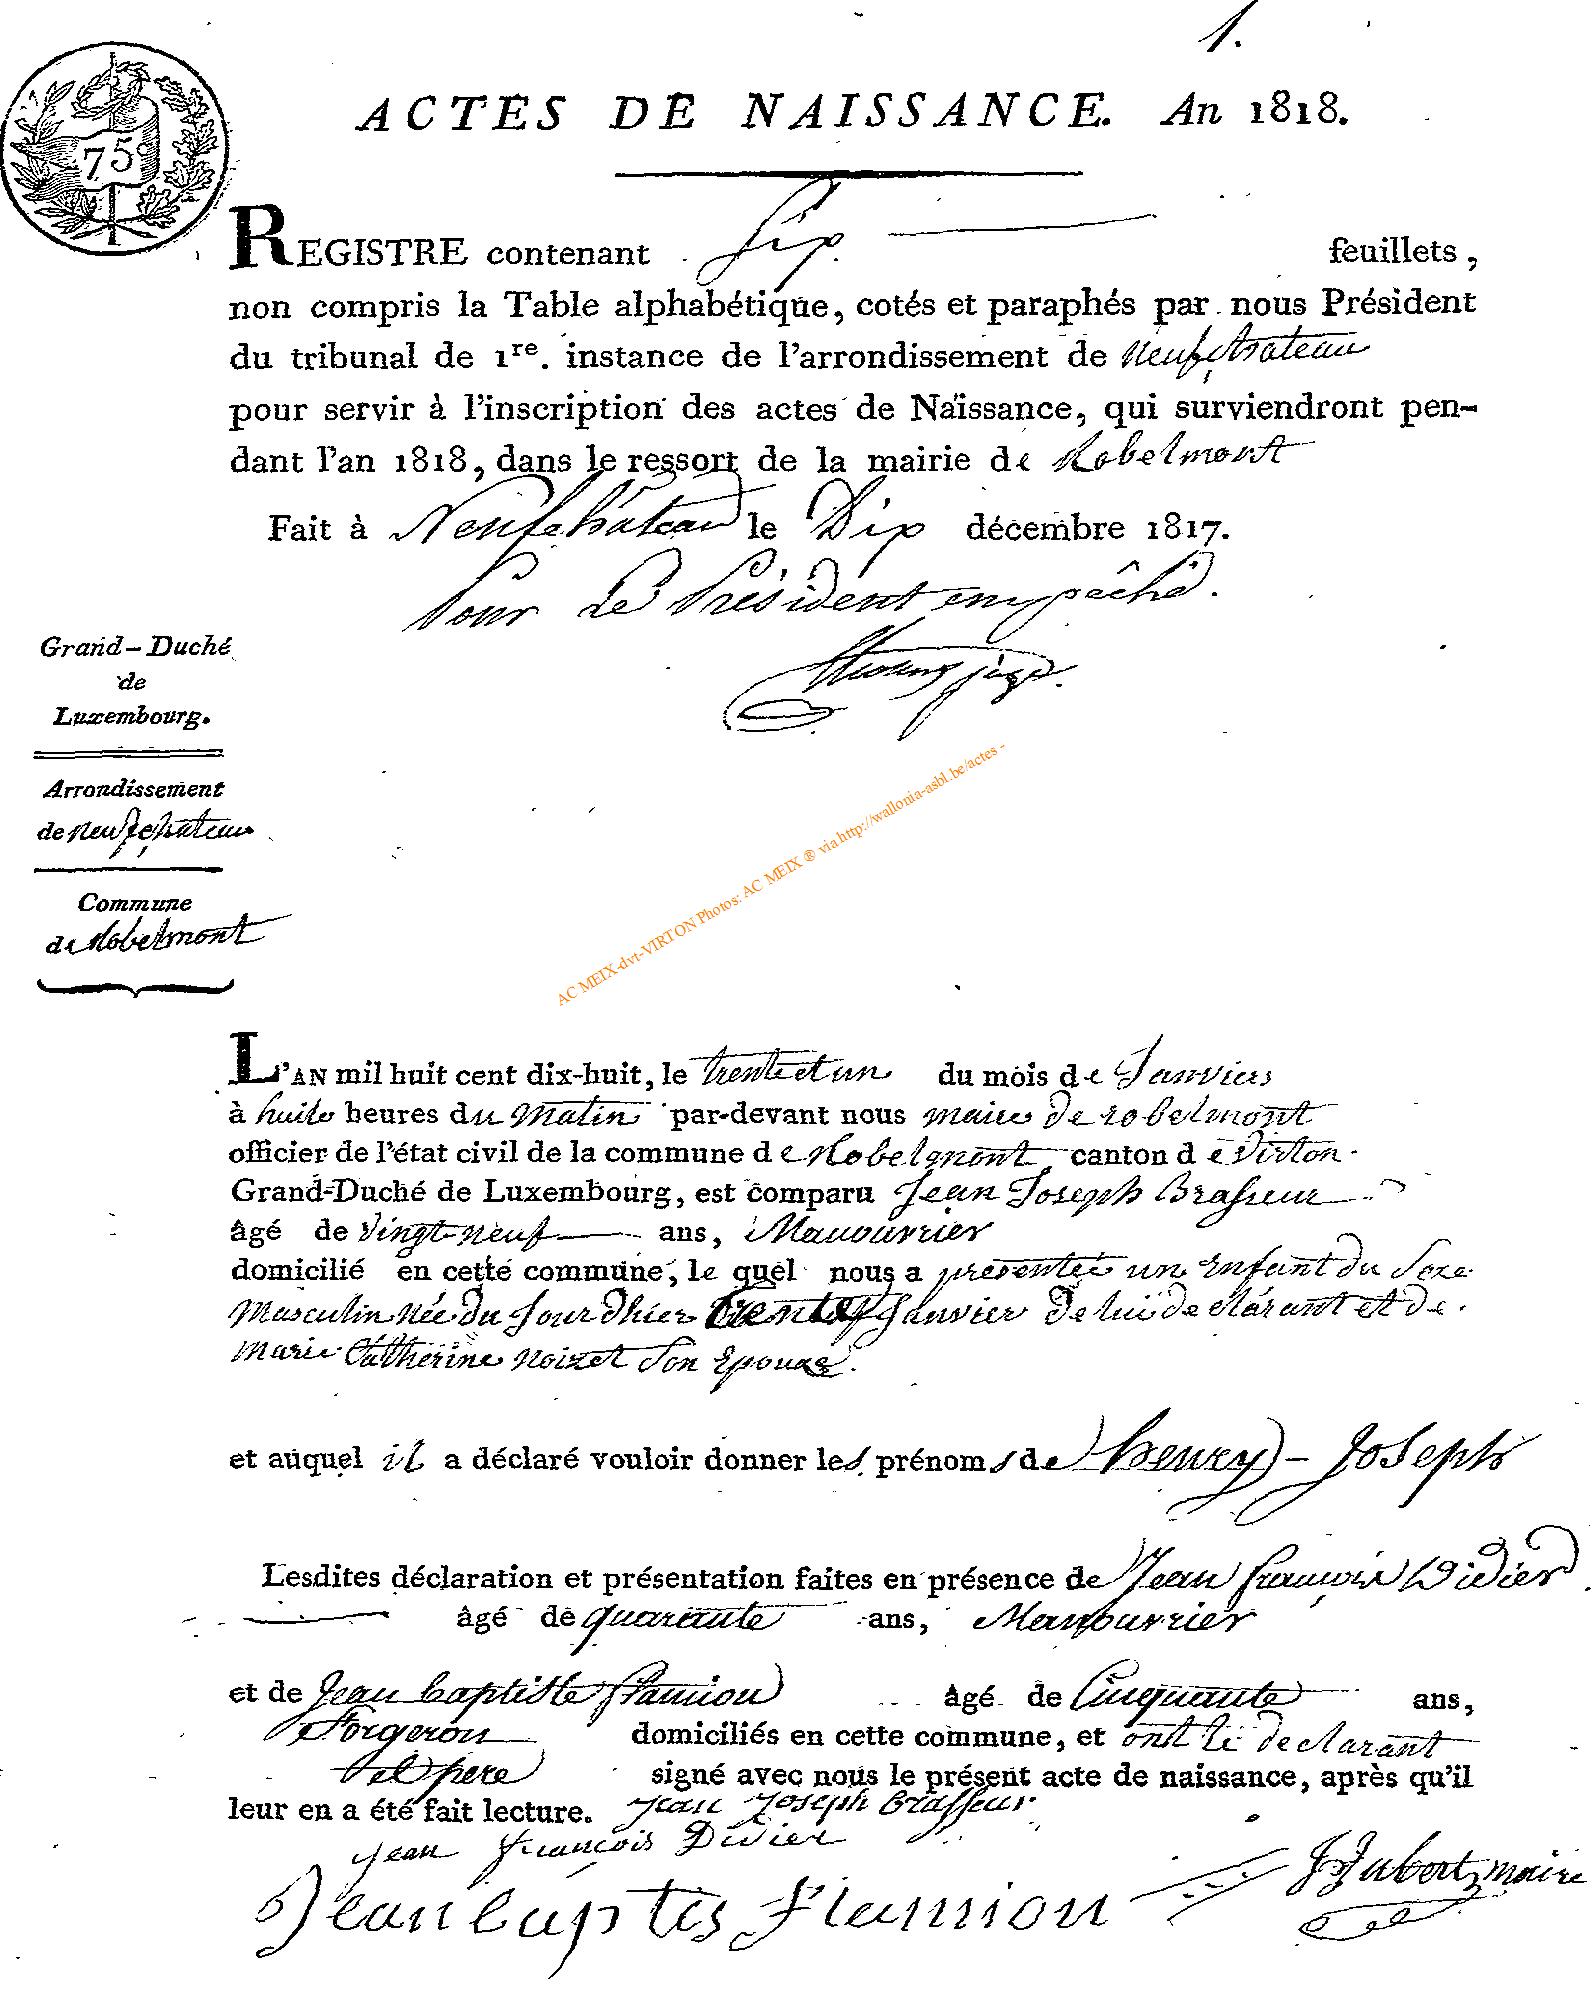 1.
75c
ACTES DE NAISSANCE. An 1818.
REGISTRE contenant Six feuillets,
non compris la Table alphabétique, cotés et paraphés par nous Président
du tribunal de 1re. instance de l'arrondissement de neufchateau
pour servir à l'inscription des actes de Naissance, qui surviendront pen-
dant l'an 1818, dans le ressort de la mairie de Robelmont
Fait à Neufchâteau le Dix décembre 1817.
Pour Le Président empêché.
juge.
Grand-Duché
de
Luxembourg.
Arrondissement
de neufchateau
Commune
de Robelmont
AC MEIX-dvt-VIRTON Photos: AC MEIX ® via http://wallonia-asbl.be/actes -
L'AN mil huit cent dix-huit, le trente et un du mois de Janvier
à huite heures du Matin par-devant nous maire de robelmont
officier de l'état civil de la commune de Robelmont canton de Virton.
Grand-Duché de Luxembourg, est comparu Jean Joseph Brasseur
âgé de Vingt-neuf ans, Manouvrier
domicilié en cette commune, le quel nous a présentée un Enfant du Sexe
Masculin Née du Jour Dhier trente Janvier De lui de clárant et de.
Marie Catherine Noizet Son Epouse.
et auquel il a déclaré vouloir donner les prénoms de henry - Joseph
Lesdites déclaration et présentation faites en présence de Jean françois Didier
âgé de quarante ans, Manouvrier
et de Jean baptiste flamion âgé de Cinquante ans,
Forgeron domiciliés en cette commune, et ont le declarant
et pere signé avec nous le présent acte de naissance, après qu'il
leur en a été fait lecture. Jean Joseph brasseur
jean françois Didier
J Jubert maire
Jean baptis flamion